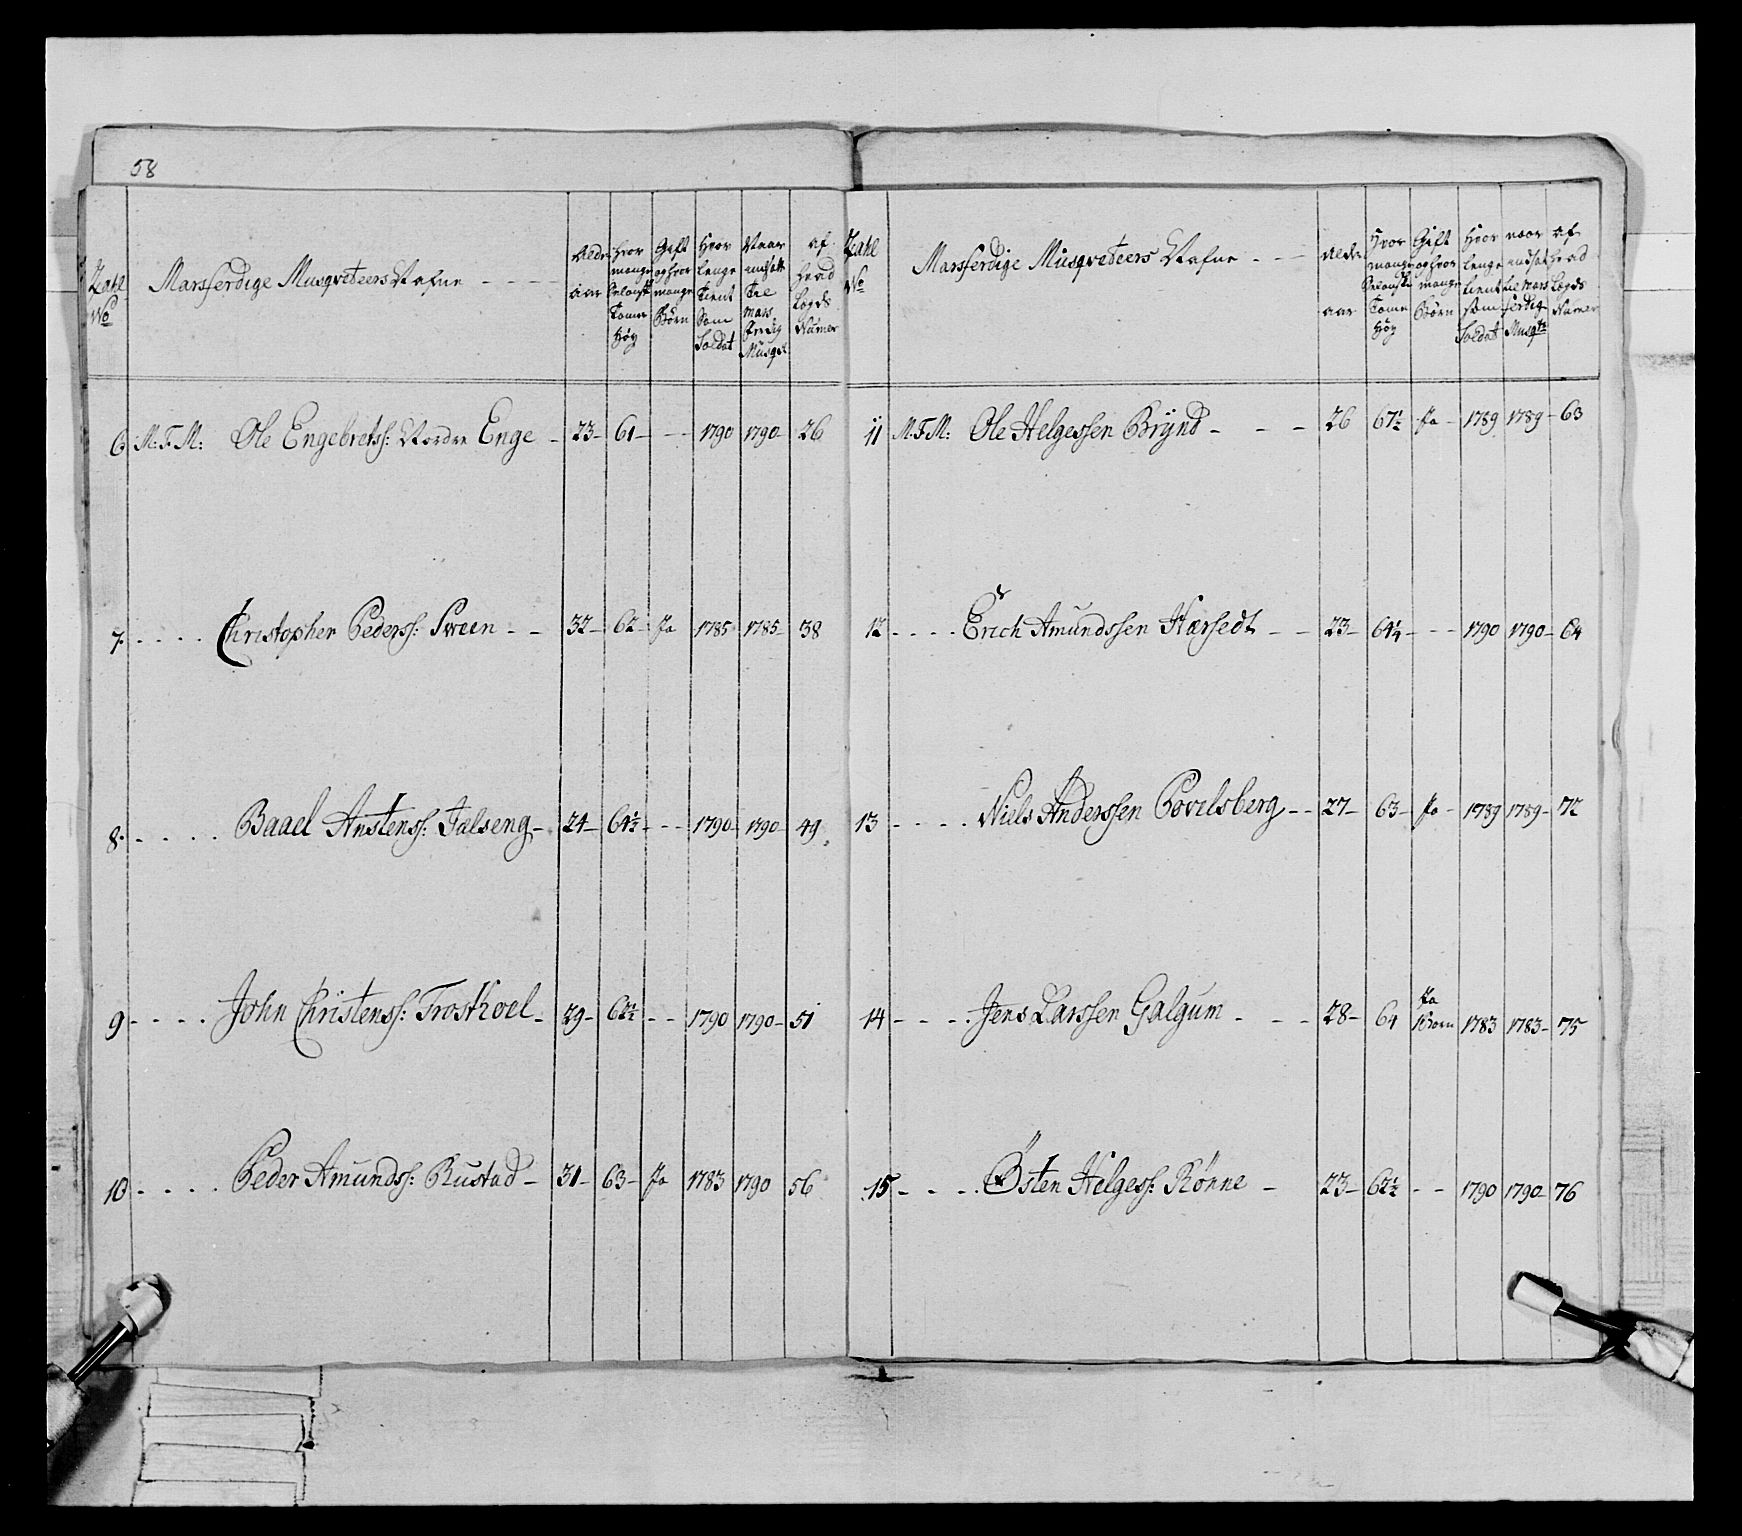 58
Zahl No
Marsferdige Musqveteers Nafne - - - -
Alder aar
Hvor mange Tomer Høy
Gift og hvor mange Børn
Hvor lenge tient Som Soldat
Naar til mars ferdig Musqet
af hvad Lægds Numer
6 M: F: M: Ole Engebretss: Nordre Enge - 23 - 61 - - - 1790 1790 - 26
7 - - - - Christopher Pederss: Sveen - - 32 - 62 - Ja 1785 1785 - 38
8 - - - - Baael Anstenss: Fælseng - 24 - 64½ - - - 1790 1790 - 49
9 - - - - John Christenss: Trosthoel - 29 - 62½ - - 1790 1790 - 51
10 - - - - Peder Amundss: Rustad - 31 - 63 - Ja 1783 1790 56
Zahl No
Marsferdige Musqveteers Nafne - - -
Alder aar
Hvor mange Tomer Høy
Gift og hvor mange Børn
Hvor lenge tient som Soldat
naar til mars ferdig Musqtr
af hvad Lægds Numer
11 M: F: M: Ole Helgessen Brÿnd - - - 26 67½ Ja - 1789 1789 - 63
12 - - - - Erich Amundssen Hærsedt - - 23 - 64¼ - - - 1790 1790 - 64
13 - - - - Niels Anderssen Povelsberg - - 27 - 63 - Ja - 1789 1789 - 72
14 - - - - Jens Larssen Galgum - - - 28 - 64 Ja 1 Barn 1783 1783 - 75
15 - - - - Østen Helgess: Rønne - 23 - 62½ - - 1790 1790 - 76